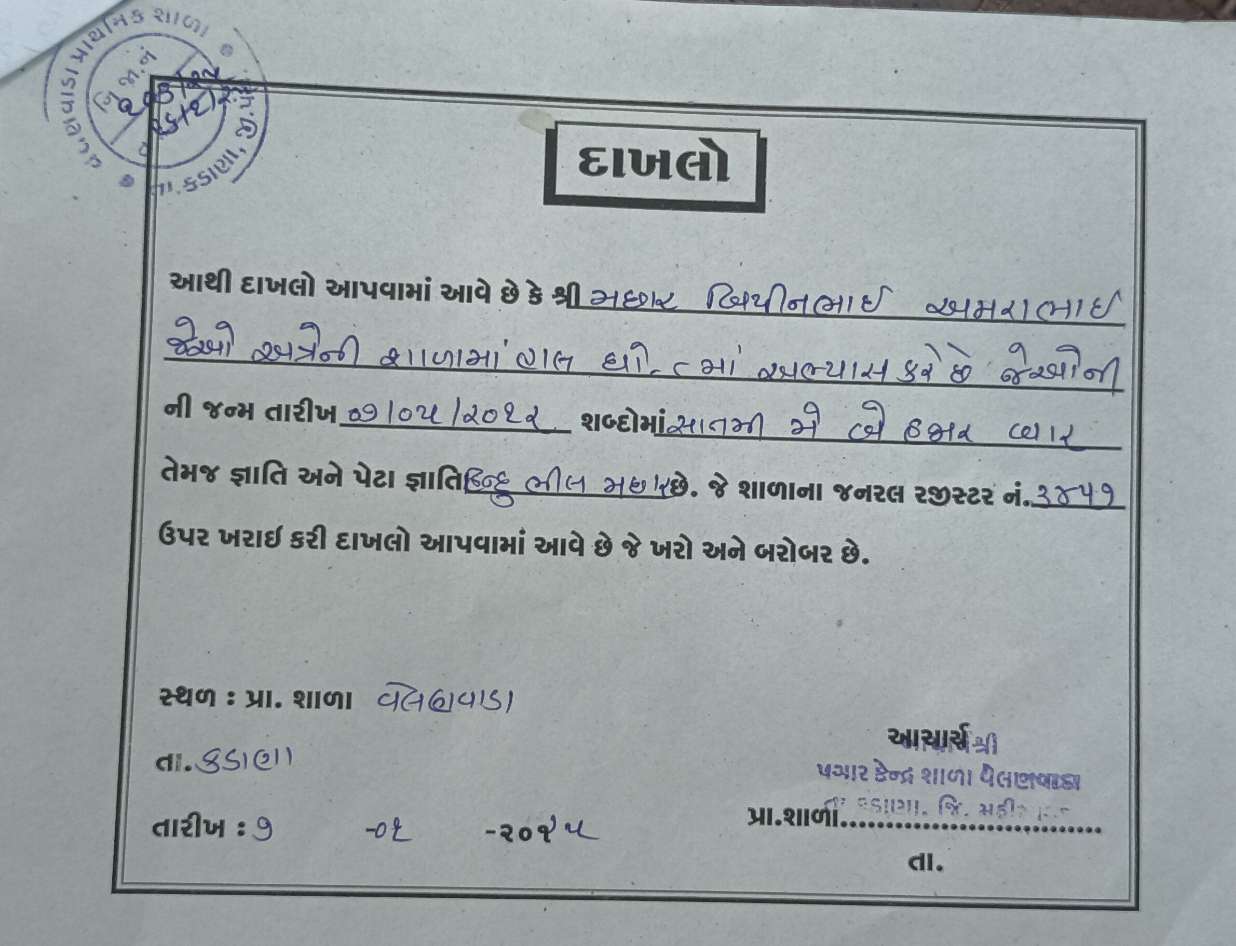 પ્રાથમિક શાળા
જા.નં
દાખલો
આથી દાખલો આપવામાં આવે છે કે શ્રી મછાર બિપીનભાઈ અમરાભાઈ
જેઓ અત્રેની શાળામાં હાલ ધો. ૮ માં અભ્યાસ કરે છે જેઓની
ની જન્મ તારીખ ૦૭/૦૫/૨૦૧૨ શબ્દોમાં સાતમી મે બે હજાર બાર
તેમજ જ્ઞાતિ અને પેટા જ્ઞાતિ હિન્દુ ભીલ મછાર છે. જે શાળાના જનરલ રજીસ્ટર નં. ૩૪૫૧
ઉપર ખરાઈ કરી દાખલો આપવામાં આવે છે જે ખરો અને બરોબર છે.
સ્થળ : પ્રા. શાળા વેલણવાડા
તા. કડાણા
આચાર્ય શ્રી
પગાર કેન્દ્ર શાળા વેલણવાડા
તારીખ : ૭ -૦૧ -૨૦૧૫
પ્રા.શાળા તા. કડાણા. જિ.
તા.